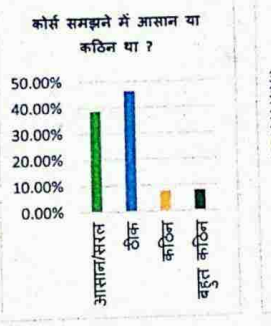 कोर्स समझने में आसान या
कठिन था ?
50.00%
40.00%
30.00%
20.00%
10.00%
0.00%
आसान/सरल
ठीक
कठिन
बहुत कठिन